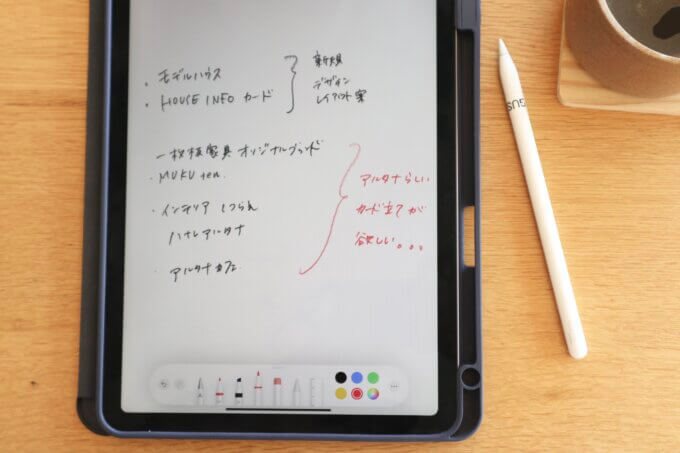 ・モデルハウス
・HOUSE INFO カード
新規
デザイン
レイアウト案
一枚板家具 オリジナルブランド
・MUKU ten.
・インテリア しつらえ
ハナレアルタナ
・アルタナカフェ
アルタナらしい
カード立てが
欲しい。。。
GUS